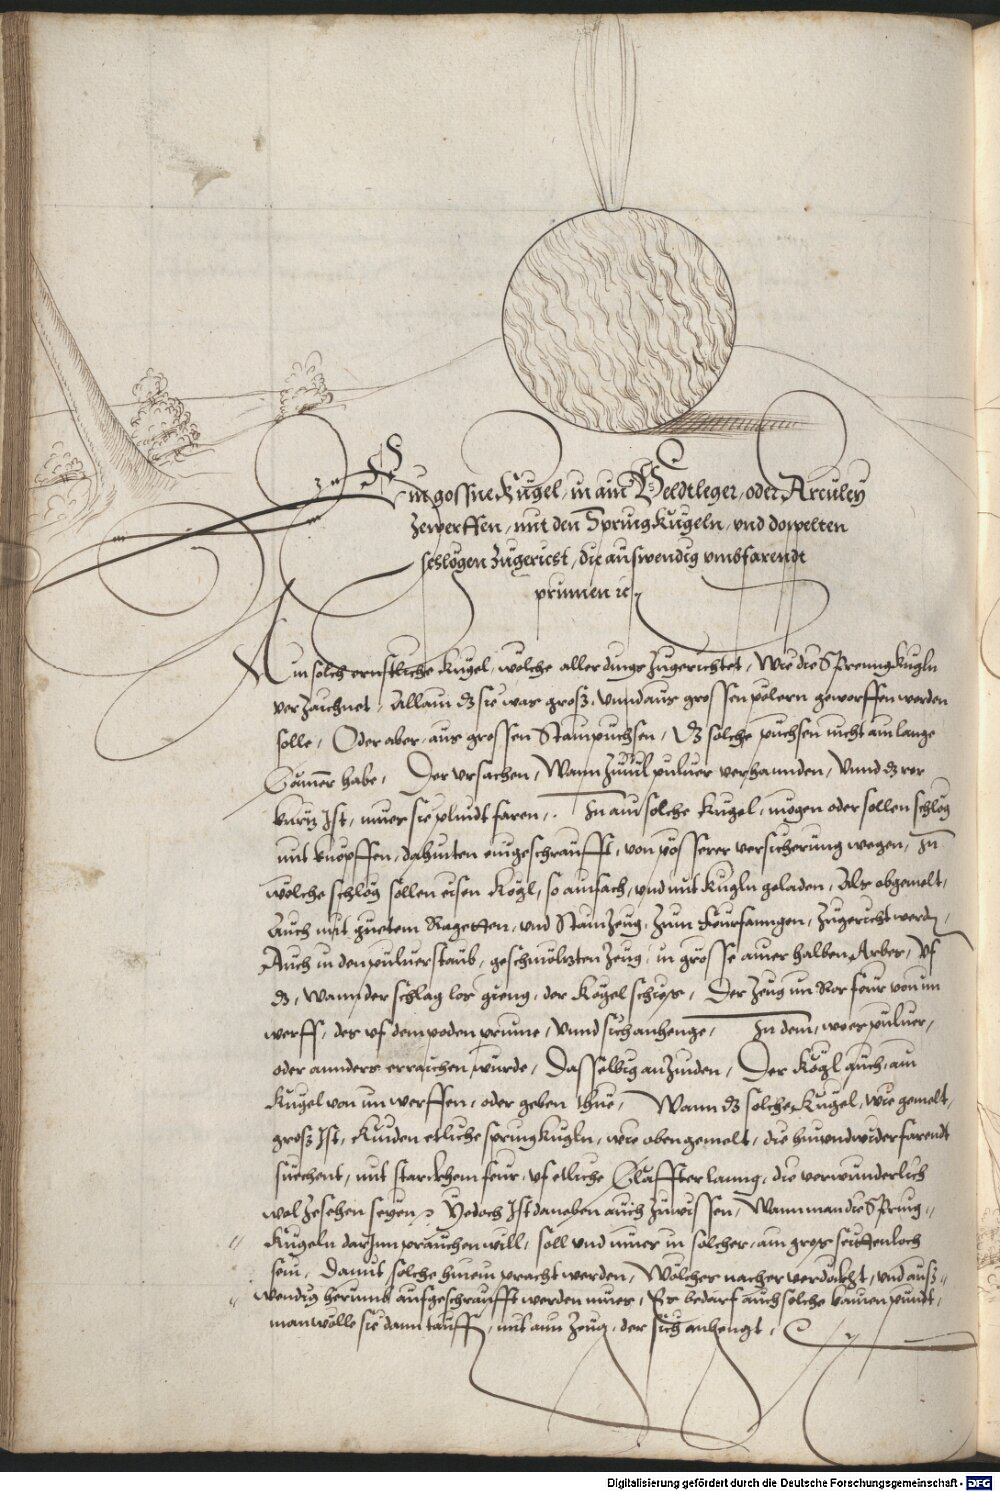 Ein gossne Kugel, in ain Veldtleger, oder Arculey
zewerffen, mit den Sprung Kugeln, vnd doppelten
schlögen zugericht, die auswendig vmbfarendt
prinnen ꝛc.
Ain solch ernstliche Kugel, wölche aller dings zugerichtet, Wie die Sprenng kugln
verzaichnet, Allain dz sie was groß, vnnd aus grossen pölern geworffen werden
solle, Oder aber, aus grossen Stainpuchsen, dz solche puchsen nicht ain lange
Camer habe, Der vrsachen, Wann zuuil puluer verhannden, Vnnd dz ror
kurtz Ist, mues sie plindt faren, In ain solche Kugel, mögen oder sollen schlög
mit knöpffen, dahinten eingeschraufft, von pösserer versicherung wegen, In
wölche schlög sollen eisen Kögl, so ainfach, vnd mit kugln geladen, Als obgemelt,
Auch mit guetem Ragetten, vnd Stainzeug, zum feurfanngen, zugericht werdn,
Auch in dem puluerstaub, geschmöltzten zeug, in grösse ainer halben Arber, Vf
dz, wann der schlag los gieng, der Kögel schiess, Der zeug im Ror feur von im
werff, der vf dem poden prinne, Vnnd sich anhenge, In dem, wo er puluer,
oder annders erraichen wurde, Dasselbig anzinden, Der Kögl auch, ain
Kugel von im werffen, oder geben thue, Wann dz solche Kugel, wie gemelt,
groß Ist, Künden etliche sprung kugln, wie oben gemelt, die hin vnd wider farendt
suechent, mit starckhem feur, vf etliche Claffter lanng, die verwunderlich
wol zesehen seyen, Yedoch Ist daneben auch zuwissen, Wann man die Sprung
Kugeln darinn prauchen will, soll vnd mues in solcher, ain gros seittenloch
sein, Damit solche hinein pracht werden, Wölches nacher verdöckht, vnd ausz
wendig herumb aufgeschraufft werden mues, Es bedarf auch solche kainen pundt,
man wölle sie dann tauff, mit ainn zeug, der sich anhengt,
Digitalisierung gefördert durch die Deutsche Forschungsgemeinschaft - DFG